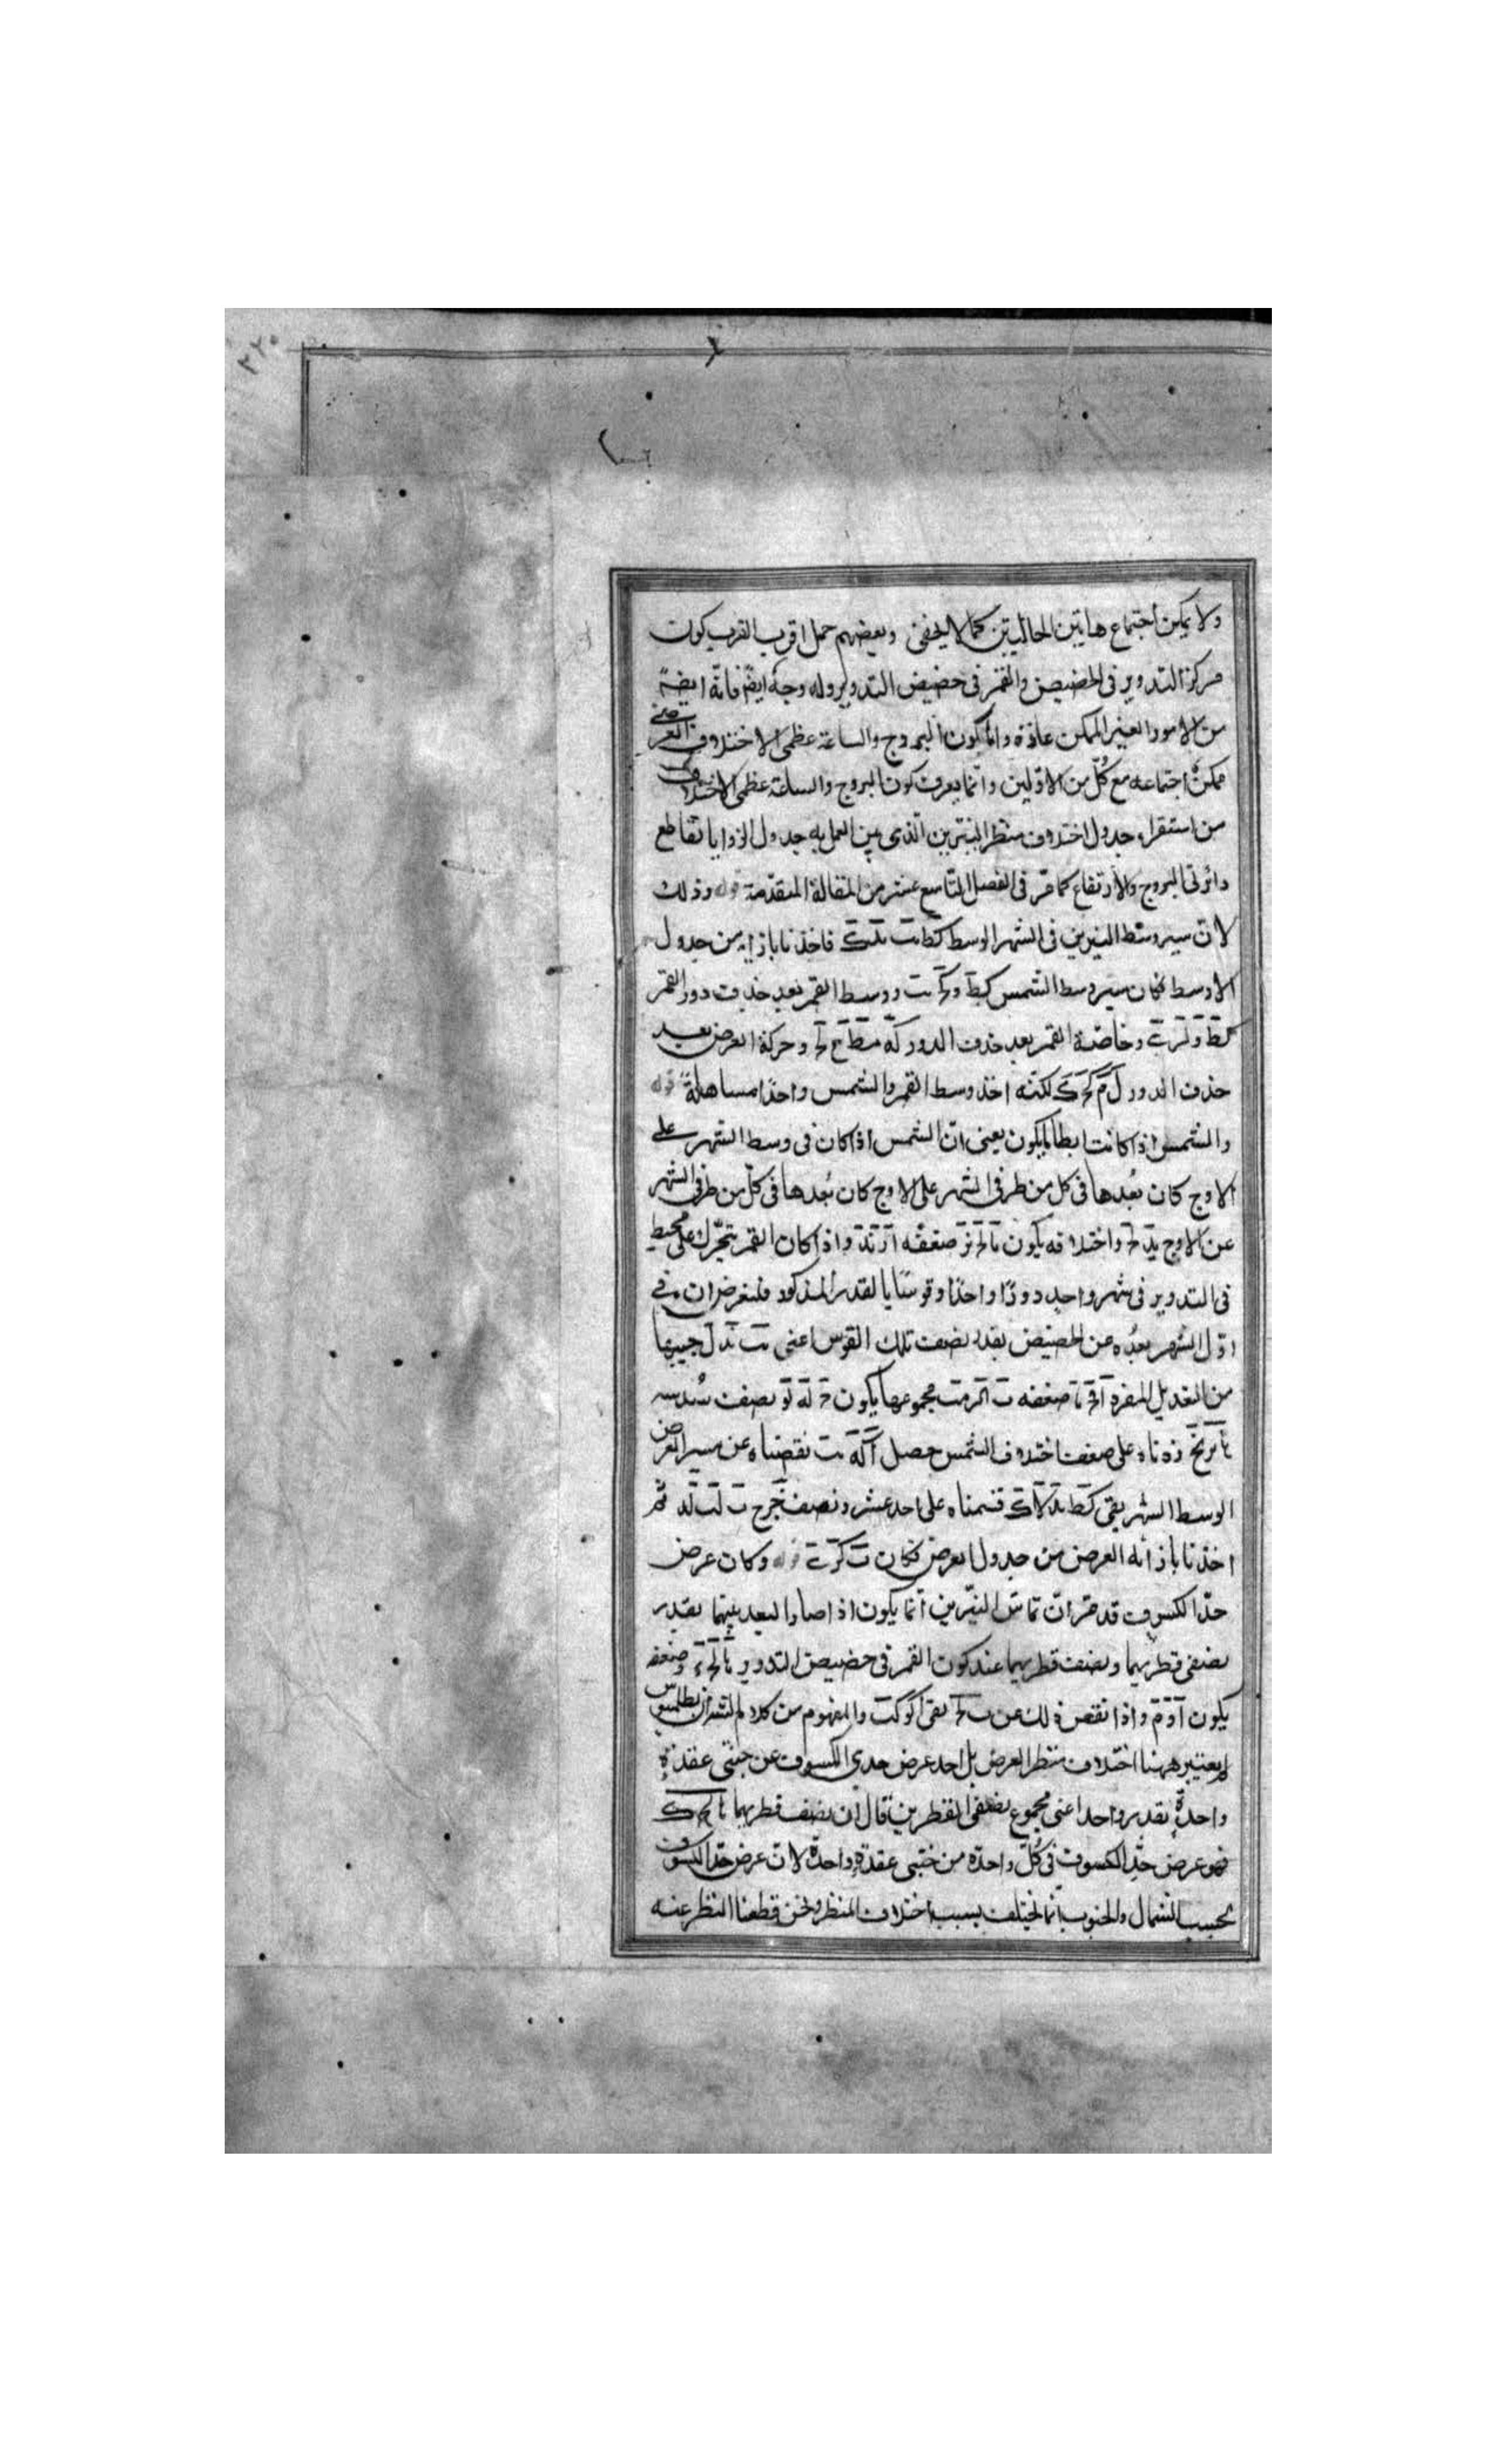 ٢٢٠
ولا يمكن اجتماع هاتين الحالتين كما لا يخفى وبعضهم حمل اقرب القرب كون
مركز التدوير فى الحضيض والقمر فى حضيض التدوير وله وجه ايضًا فانه ايضًا
من الامور الغير الممكن عادة واما كون البروج والساعة عظمى الاختلاف العرضى
ممكن اجتماعه مع كل من الاولين وانما يعرف كون البروج والساعة عظمى الاختلاف
من استقراء جدول اختلاف منظر النيرين الذى العمل به جدول الزوايا تقاطع
دائرتى البروج والارتفاع كما مر فى الفصل التاسع عشر من المقالة المتقدمة قوله وذلك
لان سير وسط النيرين فى الشهر الوسط فاخذنا بازايه من جدول
الاوسط فكان سير وسط الشمس كط و ووسط القمر بعد حذف دور القمر
كط و وخاصة القمر بعد حذف الدور كه مط وحركة العرض بعد
حذف الدور ل م لكنه اخذ وسط القمر والشمس واحدًا مساهلةً قوله
والشمس اذا كانت ابطا ما يكون يعنى ان الشمس اذا كان فى وسط الشهر على
الاوج كان بُعدها فى كل من طرفى الشهر على الاوج كان بُعدها فى كل من طرفى الشهر
عن الاوج يد واختلافه يكون ضعفه واذا كان القمر يتحرك على محيط
فى التدوير فى شهر واحد دورًا واحدًا وقوسًا بالقدر المذكور فلنفرض ان فى
اول الشهر بعُده عن الحضيض بقدر نصف تلك القوس اعنى جيبها
من التعديل المفرد ضعفه مجموعها يكون نصف سُدسه
زدناه على ضعف اختلاف الشمس حصل نقصناه عن مسير العرض
الوسط الشهر بقى كط قسمناه على احد عشر ونصف خرج ثم
اخذنا بازائه العرض من جدول العرض فكان قوله وكان عرض
حد الكسوف قد مر ان تماس النيرين انما يكون اذا صار البعد بينهما بقدر
نصفى قطريهما ونصف قطريهما عند كون القمر فى حضيض التدوير وضعفه
يكون واذا نقص ذلك عن بقى والمفهوم من كلام الشارح ان بطلميوس
لم يعتبر ههنا اختلاف منظر العرض بل احد عرض حدى الكسوف عن جنبتى عقدة
واحدة بقدر واحد اعنى مجموع نصفى القطرين قال ان نصف قطريهما
فهو عرض حد الكسوف فى كل واحدة من جنبتى عقدة واحدة لان عرض حد الكسوف
بحسب الشمال والجنوب انما يختلف بسبب اختلاف المنظر ونحن قطعنا النظر عنه